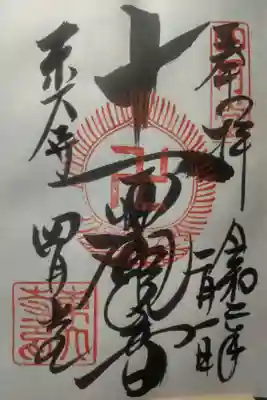 奉拝
令和二年
月 日
十一面観音
卍
東大寺
四月堂